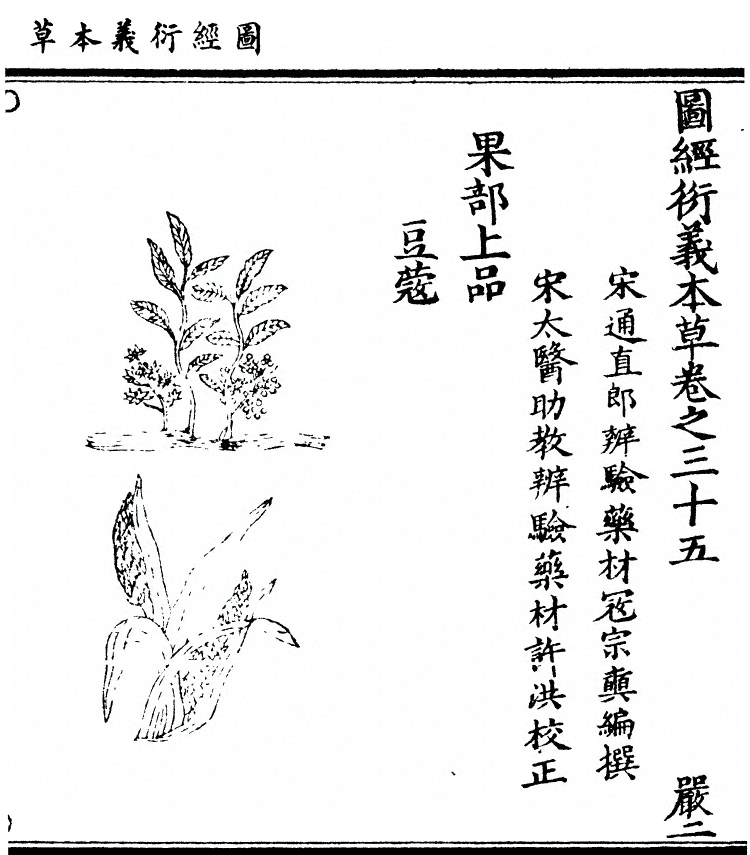 圖經衍義本草
圖經衍義本草卷之三十五
嚴二
宋通直郎辨驗藥材冦宗奭編撰
宋太醫助教辨驗藥材許洪校正
果部上品
豆蔻